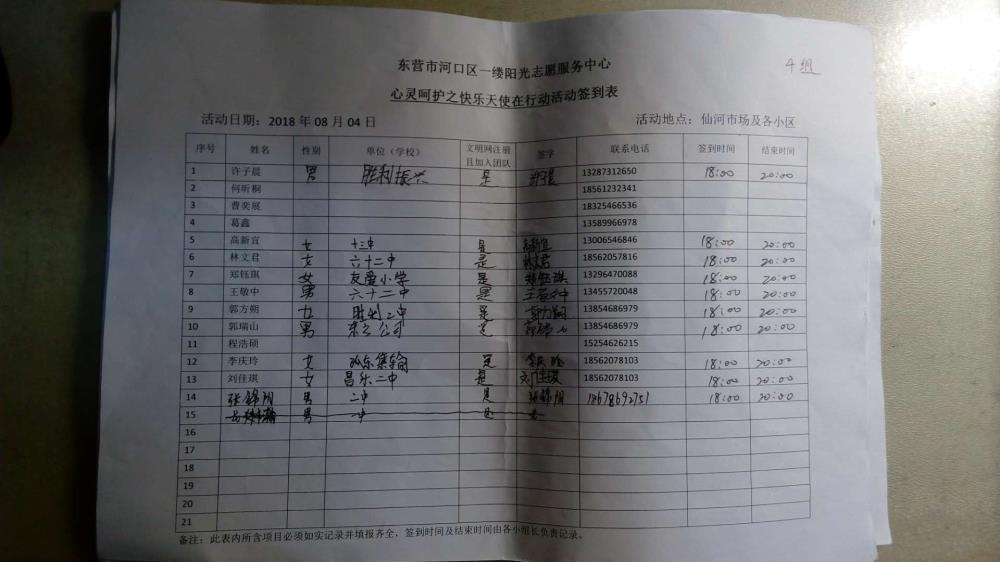 东营市河口区一缕阳光志愿服务中心
4组
心灵呵护之快乐天使在行动活动签到表
活动日期：2018 年 08 月 04 日 活动地点：仙河市场及各小区
序号 姓名 性别 单位（学校） 文明网注册且加入团队 签字 联系电话 签到时间 结束时间
1 许子晨 男 胜利振兴 是 13287312650 18:00 20:00
2 何昕桐 18561232341
3 曹奕展 18325466536
4 葛鑫 13589966978
5 高新宜 女 十三中 是 高新宜 13006546846 18:00 20:00
6 林文君 女 六十二中 是 林文君 18562057816 18:00 20:00
7 郑钰琪 女 友爱小学 是 郑钰琪 13296470088 18:00 20:00
8 王敬中 男 六十二中 是 王敬中 13455720048 18:00 20:00
9 郭方朔 女 胜利二中 是 郭方朔 13854686979 18:00 20:00
10 郭瑞山 男 公司 是 13854686979 18:00 20:00
11 程浩硕 15254626215
12 李庆玲 女 孤东集输 是 李庆玲 18562078103 18:00 20:00
13 刘佳琪 女 昌乐二中 是 刘佳琪 18562078103 18:00 20:00
14 男 二中 是 18678692751 18:00 20:00
15 男 是
16
17
18
19
20
21
备注：此表内所含项目必须如实记录并填报齐全，签到时间及结束时间由各小组长负责记录。